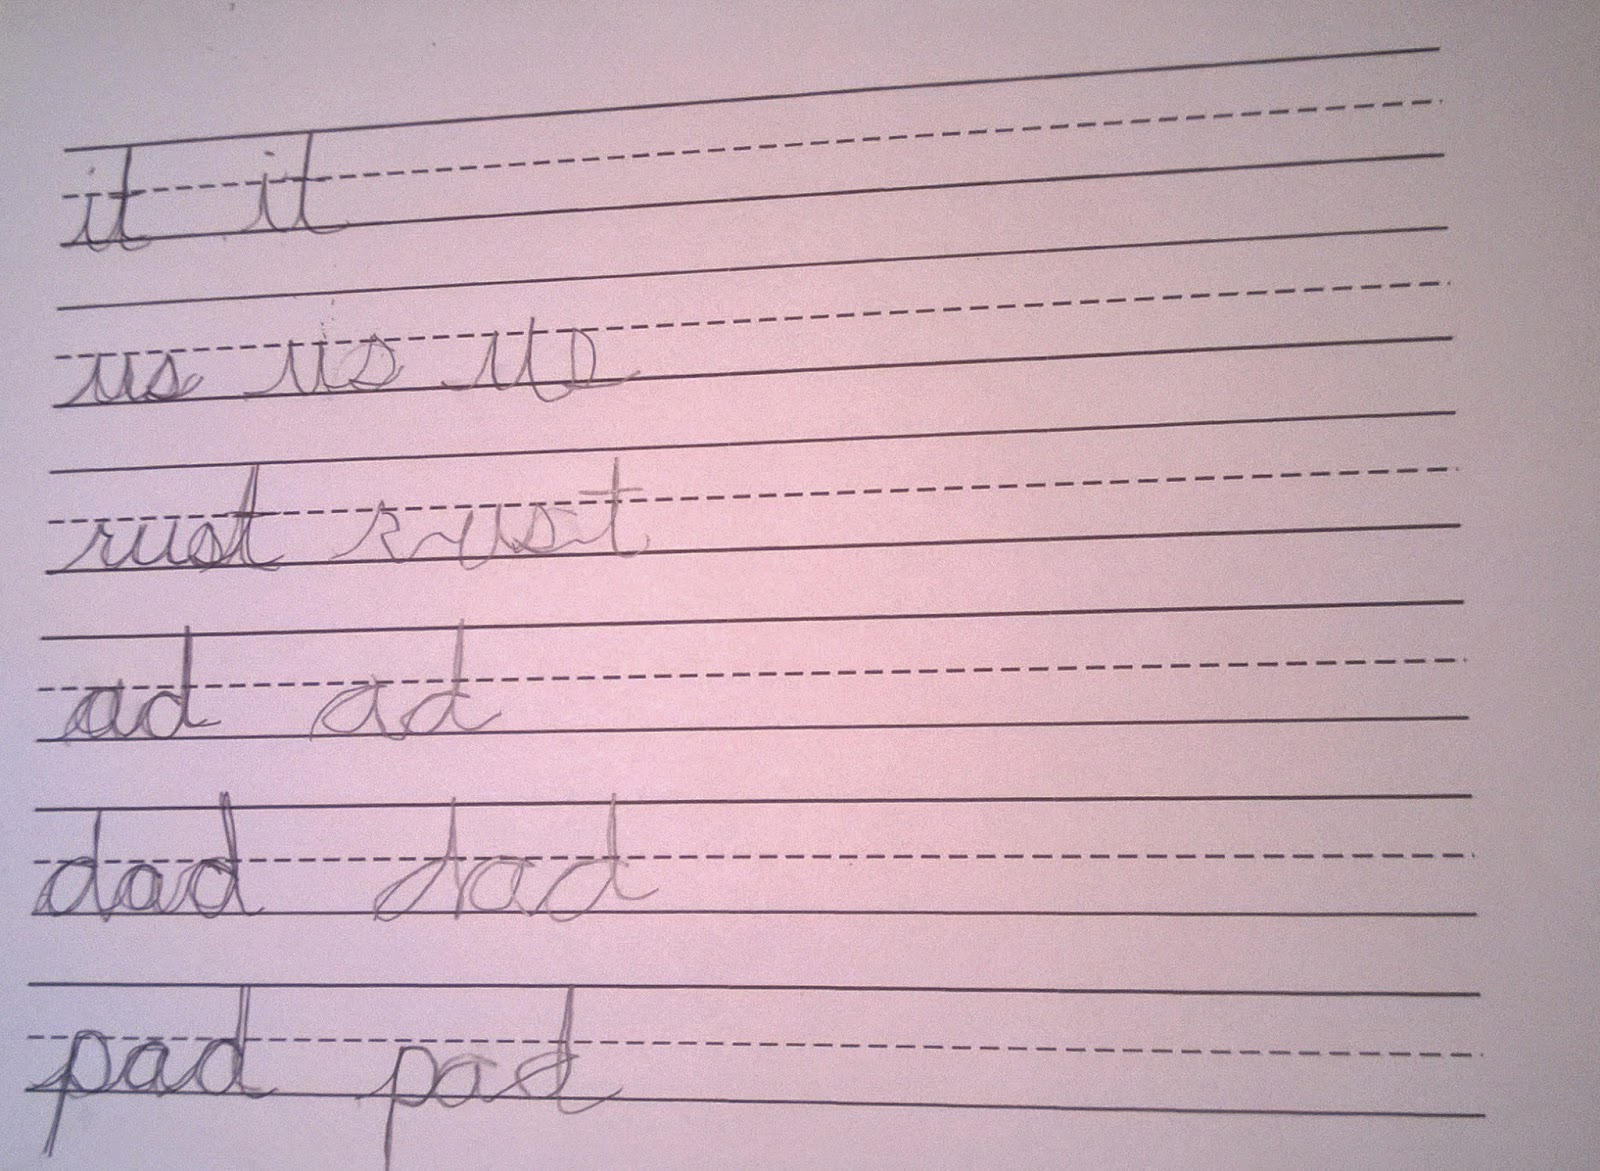 it it
us us us
rust rust
ad ad
dad dad
pad pad